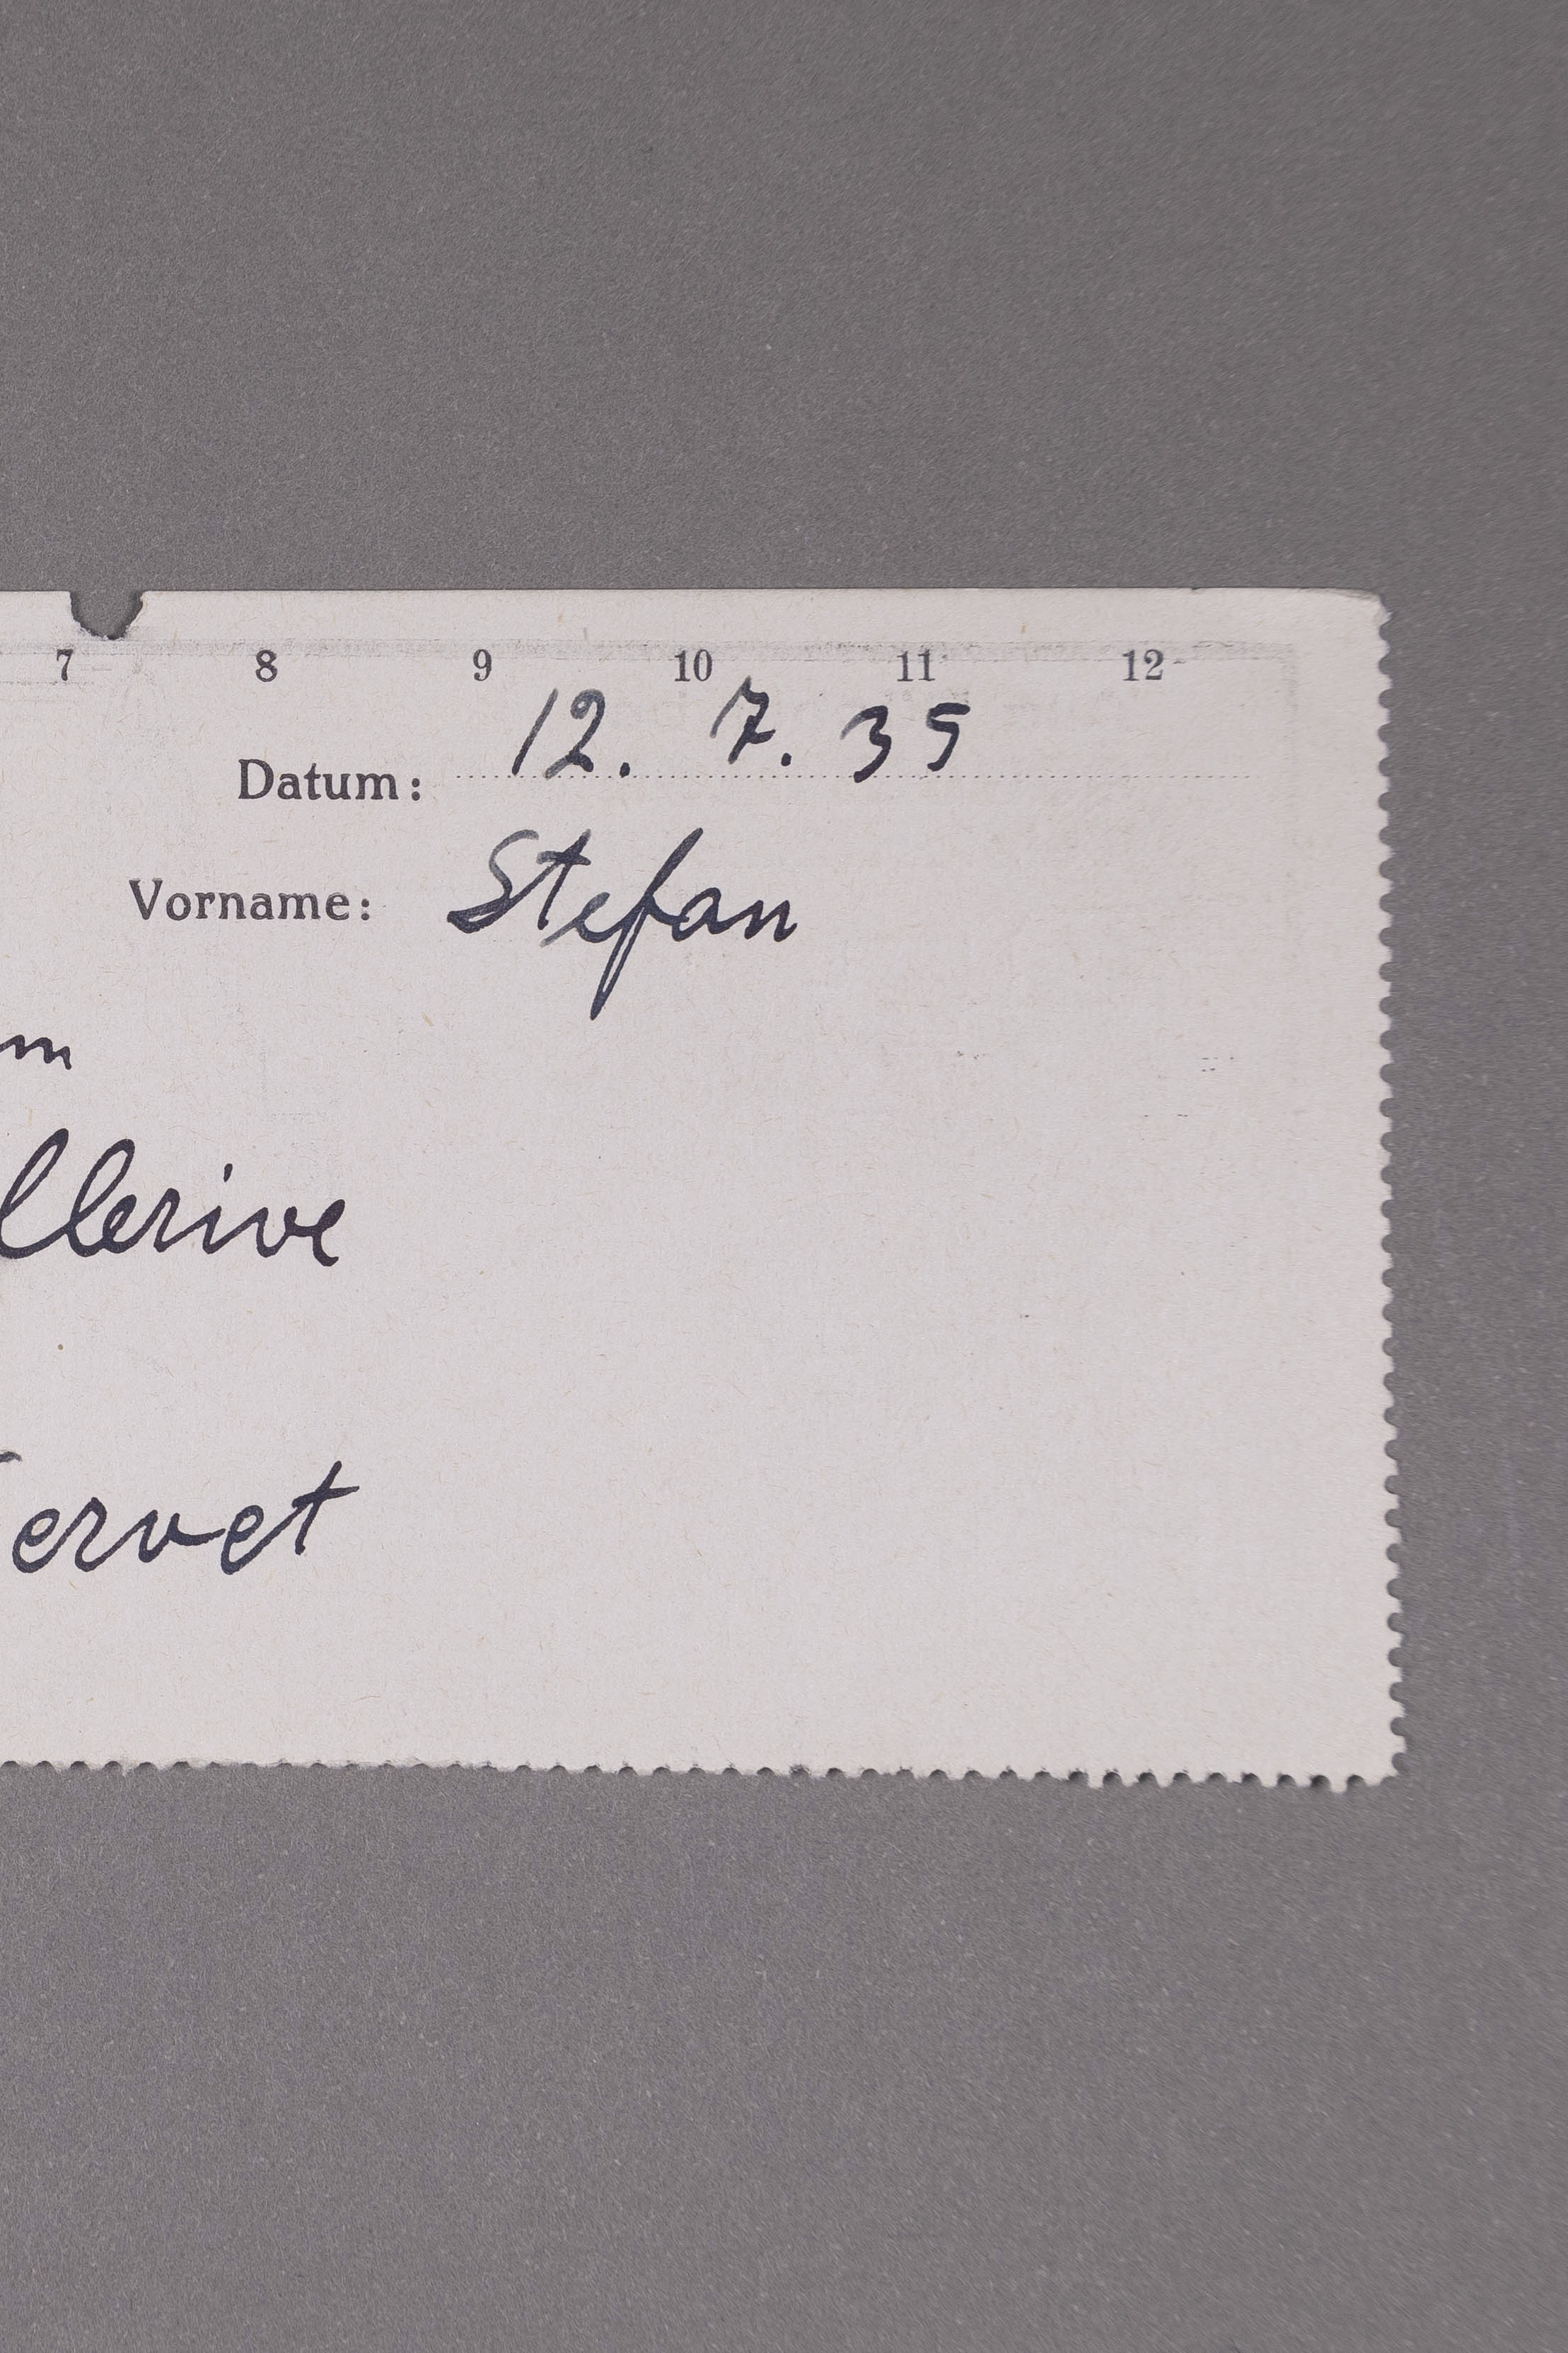 7 8 9 10 11 12
Datum: 12. 7. 39
Vorname: Stefan
m
llerive
ervet